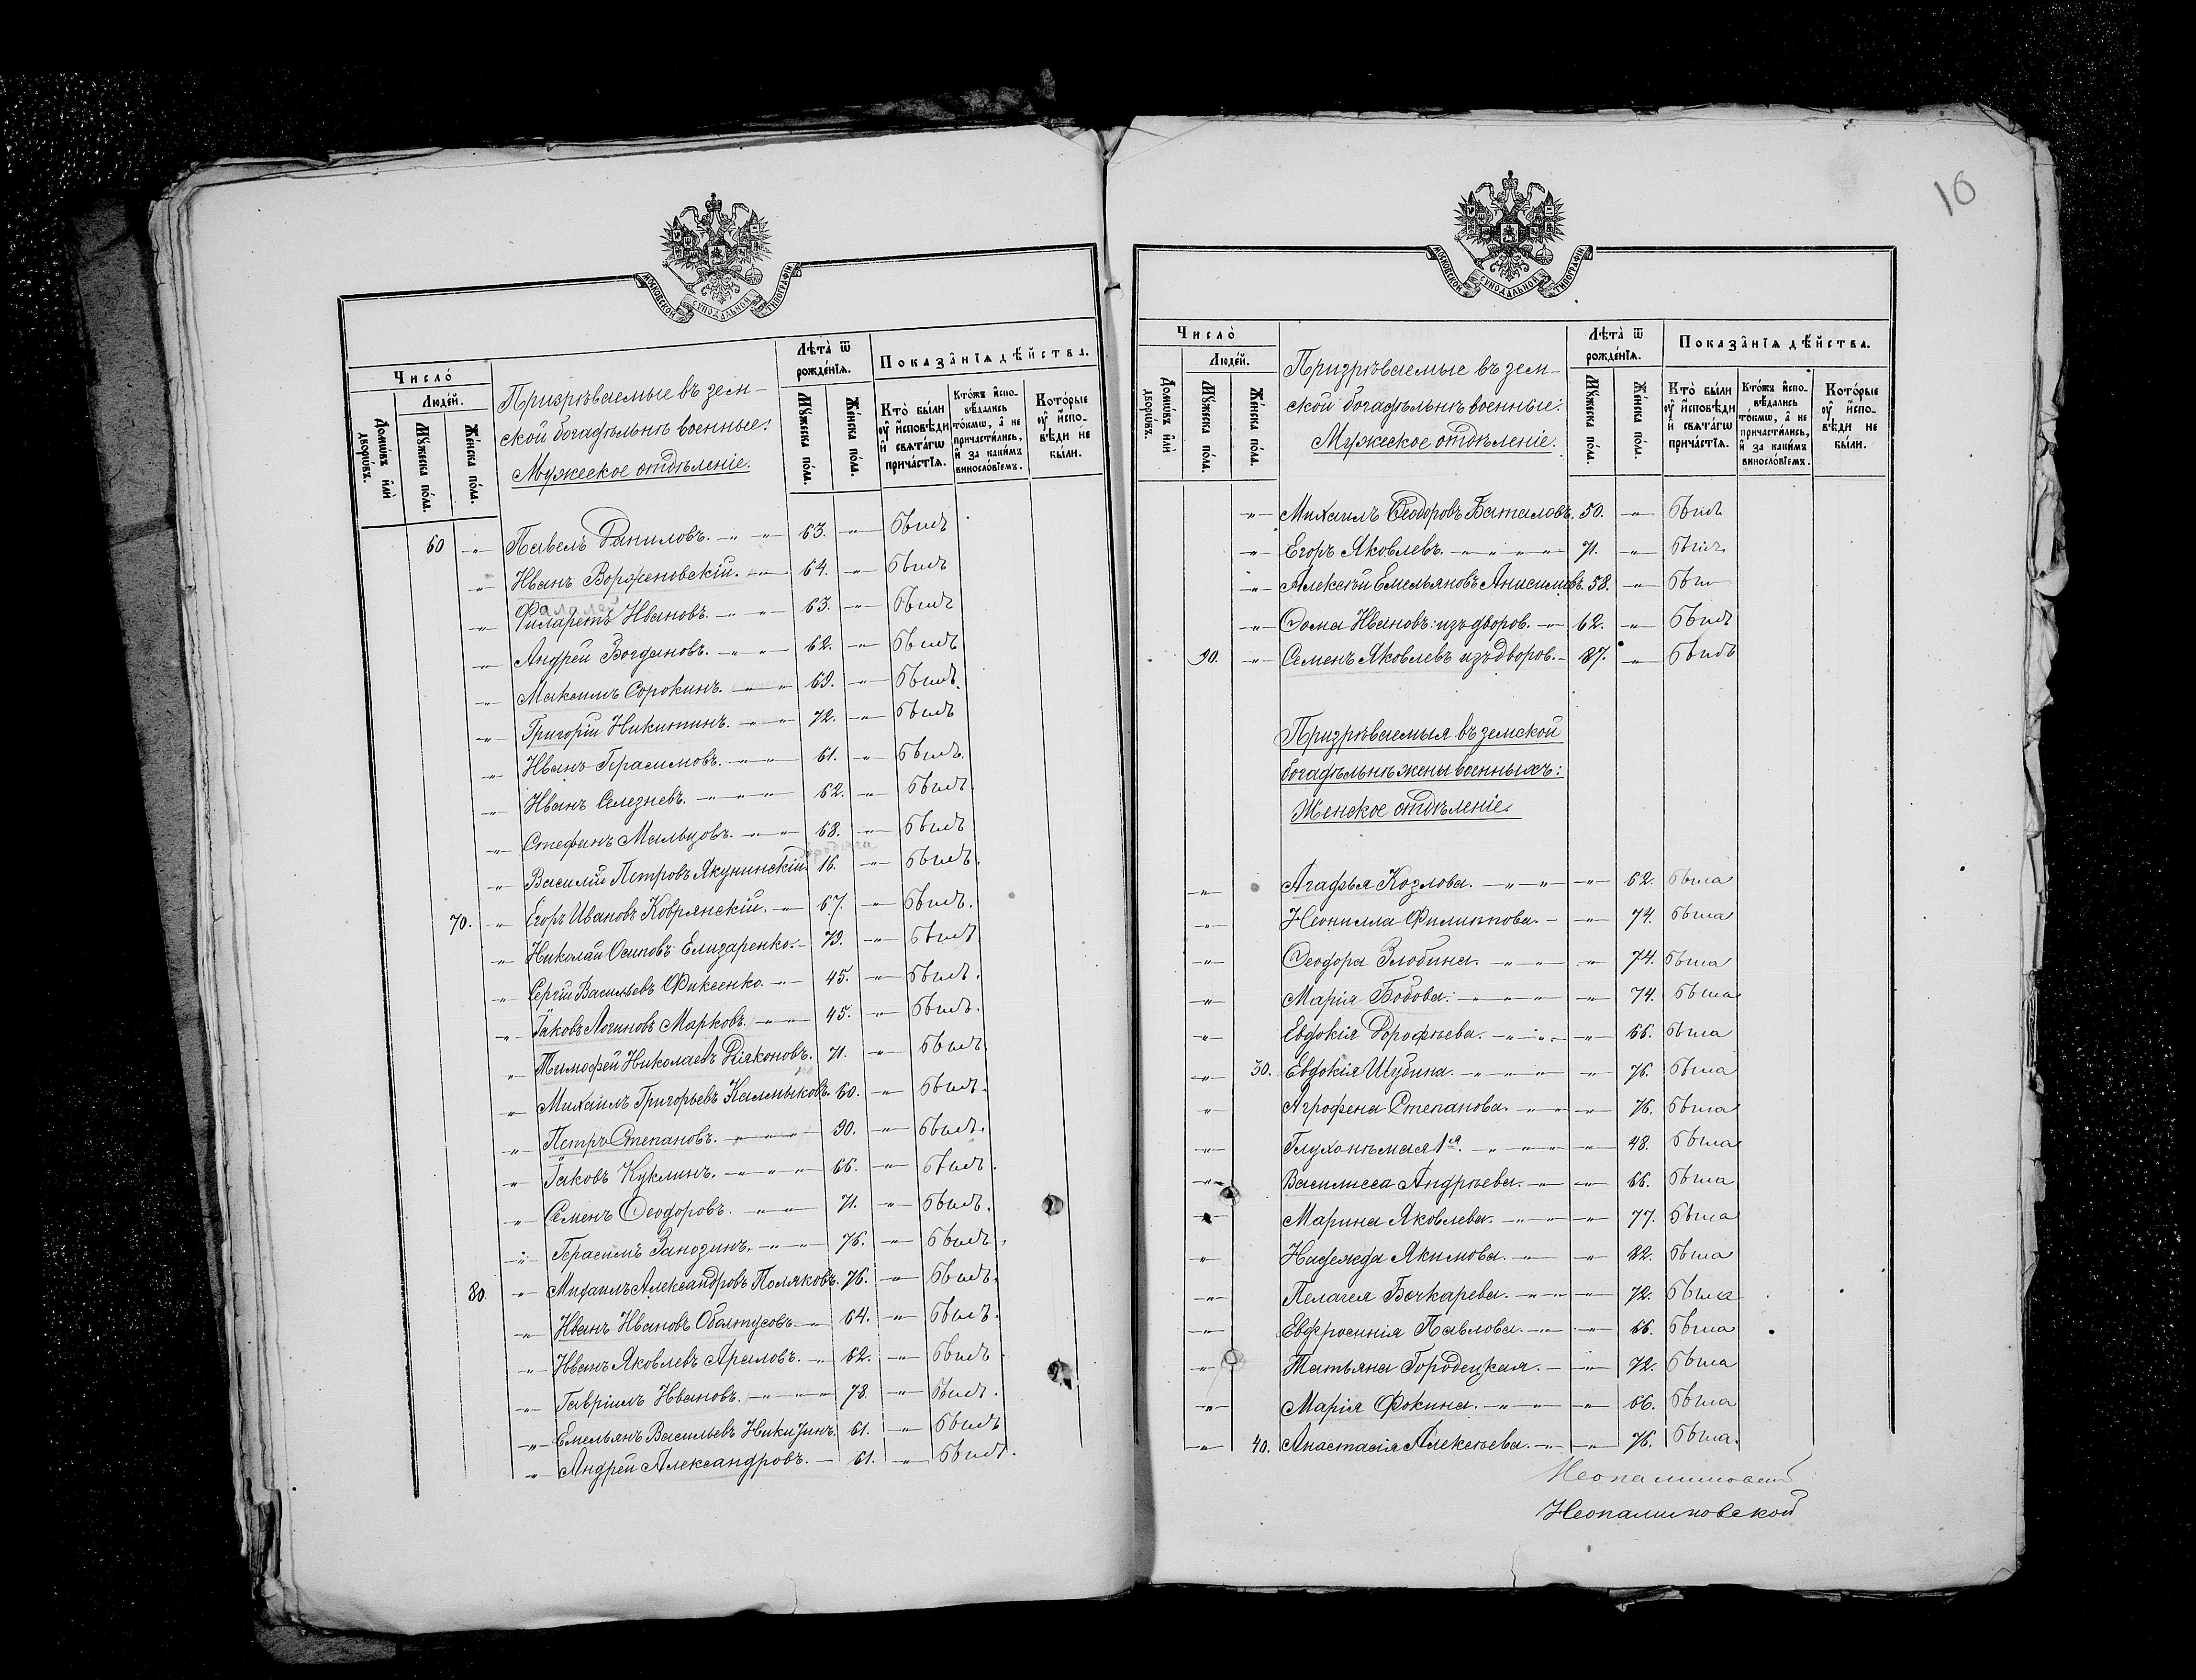 МОСКОВСКОЙ СУНОДАЛЬНОЙ ТИПОГРАФІИ
Число̀
Людей.
Домѡвъ и҆лѝ дворѡвъ.
Мꙋжеска по́ла.
Же́нска по́ла.
Призрѣваемые въ зем-
ской богадѣльнѣ военные:
Мужеское отдѣленіе.
Лѣта̀ ѿ рожде́нїѧ.
Мꙋжеска по́ла.
Же́нска по́ла.
Показа̂нїѧ дѣ́йства.
Кто̀ бы́ли ᲂу҆ и҆сповѣди и҆ свѧта́гѡ прича́стїѧ.
Кто́жъ и҆спо-вѣдались то́кмѡ, а҆ не причасти́лись, и҆ за каки́мъ винослові́емъ.
Кото́рые ᲂу҆ и҆спо-вѣди не бы́ли.
60 -„- Павелъ Даниловъ. -„-„- 63. -„- былъ
-„- Иванъ Ворженовскій. -„- 64. -„- былъ
-„- Филаретъ Ивановъ. -„-„- 63. -„- былъ
-„- Андрей Богдановъ. -„-„- 62. -„- былъ
-„- Максимъ Сорокинъ. -„-„- 69. -„- былъ.
-„- Григорій Никитинъ. -„-„- 72. -„- былъ
-„- Иванъ Герасимовъ. -„-„- 61. -„- былъ.
-„- Иванъ Селезневъ. -„-„-„- 62. -„- былъ.
-„- Стефанъ Мальцовъ. -„-„- 68. -„- былъ
-„- Василій Петровъ Якунинскій. 16. -„- былъ.
70. -„- Егоръ Ивановъ Ковррянскій. -„- 67. -„- былъ.
-„- Николай Осиповъ Елизаренко. - 79. -„- былъ
-„- Сергій Васильевъ Фиксенко. -„- 45. -„- былъ.
-„- Іаковъ Логиновъ Марковъ. -„-„- 45. -„- былъ.
-„- Тимофей Николаевъ Діяконовъ. 71. -„- былъ.
-„- Михаилъ Григорьевъ Калмыковъ. 60. -„- былъ.
-„- Петръ Степановъ. -„-„-„- 90. -„- былъ.
-„- Іаковъ Куклинъ. -„-„-„- 66. -„- былъ.
-„- Семенъ Ѳеодоровъ. -„-„- 71. -„- былъ.
-„- Герасимъ Занозинъ. -„-„- 76. -„- былъ.
80. -„- Михаилъ Александровъ Поляковъ. 76. -„- былъ.
-„- Иванъ Ивановъ Оболтусовъ -„- 64. -„- былъ.
-„- Иванъ Яковлевъ Араловъ. -„- 62. -„- былъ
-„- Гавріилъ Ивановъ. -„-„-„- 78. -„- былъ.
-„- Емельянъ Васильевъ Никизинъ. 61. -„- былъ
-„- Андрей Александровъ. - 61. -„- былъ.
10
МОСКОВСКОЙ СУНОДАЛЬНОЙ ТИПОГРАФІИ
Число̀
Людей.
Домѡвъ и҆лѝ дворѡвъ.
Мꙋжеска по́ла.
Же́нска по́ла.
Призрѣваемые въ зем-
ской богадѣльнѣ военные:
Мужеское отдѣленіе.
Лѣта̀ ѿ рожде́нїѧ.
Мꙋжеска по́ла.
Же́нска по́ла.
Показа̂нїѧ дѣ́йства.
Кто̀ бы́ли ᲂу҆ и҆сповѣди и҆ свѧта́гѡ прича́стїѧ.
Кто́жъ и҆спо-вѣдались то́кмѡ, а҆ не причасти́лись, и҆ за каки́мъ винослові́емъ.
Кото́рые ᲂу҆ и҆спо-вѣди не бы́ли.
-„- Михаилъ Ѳеодоровъ Баталовъ. 50. -„- былъ
-„- Егоръ Яковлевъ. -„-„-„-„- 71. -„- былъ
-„- Алексѣй Емельяновъ Анисимовъ. 58. -„- былъ
-„- Ѳома Ивановъ: изъ дворов. -„- 62. -„- былъ
90. -„- Семенъ Яковлевъ изъ дворов. - 87. -„- былъ
Призрѣваемыя въ земской
богадѣльнѣ жены военныхъ:
Женское отдѣленіе.
-„- Агафья Козлова. -„-„- -„- 62. была
-„- Неонилла Филиппова. - -„- 74. была
-„- Ѳеодора Злобина. -„-„- -„- 74. была
-„- Марія Бобова. -„-„-„- -„- 74. была
-„- Евдокія Дорофѣева. -„-„- -„- 66. была
-„- 30. Евдокія Шубина. -„-„-„- -„- 76. была
-„- Агрофена Степанова. -„-„- -„- 76. была
-„- Глухонѣмая 1я. -„-„-„- -„- 48. была
-„- Василисса Андрѣева. -„- -„- 66. была
-„- Марина Яковлева. -„-„- -„- 77. была
-„- Надежда Якимова. -„- -„- 82. была
-„- Пелагея Бочкарева. -„-„- -„- 72. была
-„- Евфросинія Павлова. -„- -„- 66. была
-„- Татьяна Городецкая. - -„- 72. была
-„- Марія Фокина. -„-„- -„- 66. была
-„- 40. Анастасія Алексѣева. -„- -„- 76. была.
Неопалимовской
Неопалимовской